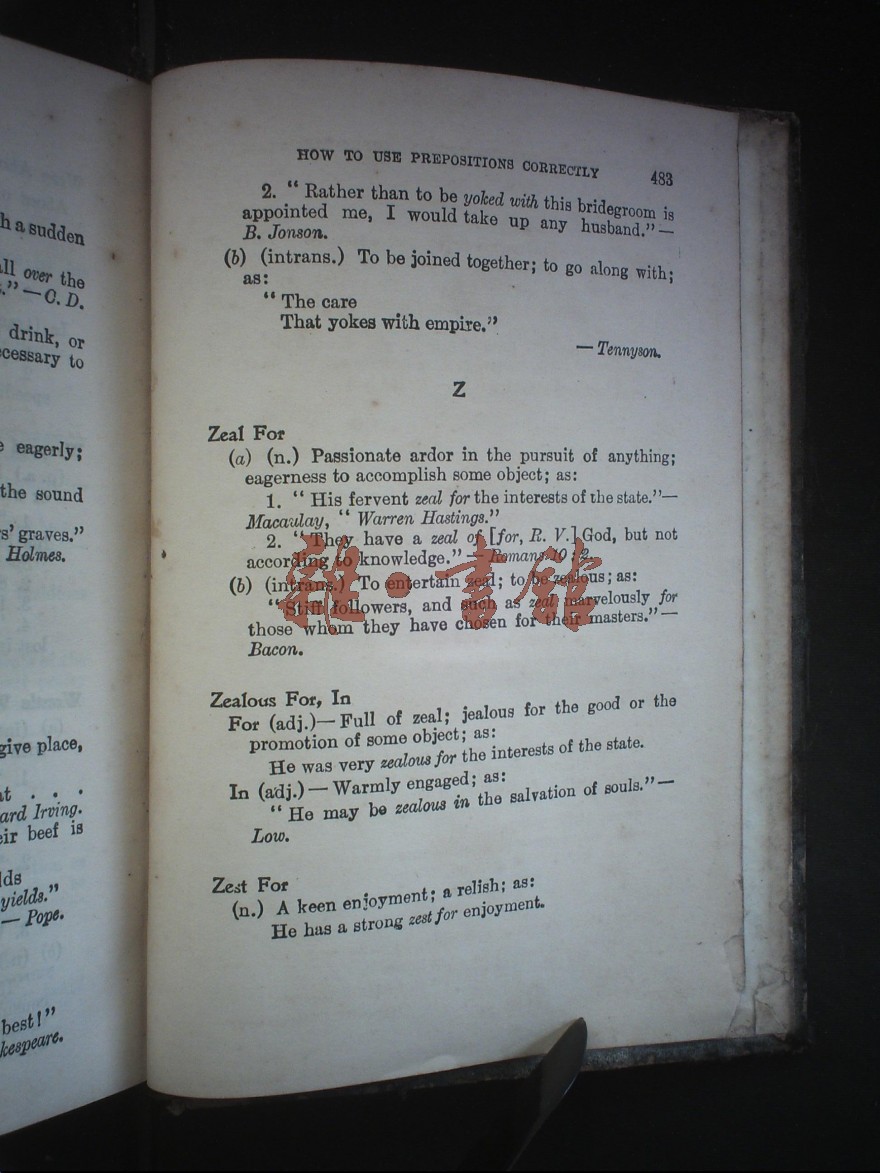 h a sudden
ll over the
." — C. D.
drink, or
cessary to
e eagerly;
the sound
rs' graves."
Holmes.
give place,
at . . .
ard Irving.
eir beef is
lds
yields."
— Pope.
best!"
kespeare.
HOW TO USE PREPOSITIONS CORRECTLY 483
2. "Rather than to be yoked with this bridegroom is
appointed me, I would take up any husband." —
B. Jonson.
(b) (intrans.) To be joined together; to go along with;
as:
"The care
That yokes with empire."
— Tennyson.
Z
Zeal For
(a) (n.) Passionate ardor in the pursuit of anything;
eagerness to accomplish some object; as:
1. "His fervent zeal for the interests of the state."—
Macaulay, "Warren Hastings."
2. "They have a zeal of [for, R. V.] God, but not
according to knowledge." — Romans 10:2.
(b) (intrans.) To entertain zeal; to be zealous; as:
"Stiff followers, and such as zeal marvelously for
those whom they have chosen for their masters." —
Bacon.
Zealous For, In
For (adj.) — Full of zeal; jealous for the good or the
promotion of some object; as:
He was very zealous for the interests of the state.
In (adj.) — Warmly engaged; as:
"He may be zealous in the salvation of souls." —
Low.
Zest For
(n.) A keen enjoyment; a relish; as:
He has a strong zest for enjoyment.
雅·書館